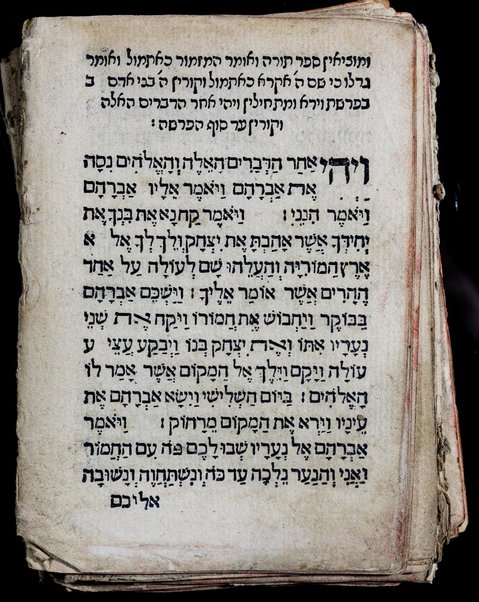 ומוציאין ספר תורה ואומר המזמור כאתמול ואומר
גדלו כי שם ה׳ אקרא כאתמול וקורין ה׳ בני אדם ב
בפרשת וירא ומתחילין ויהי אחר הדברים האלה
וקורין עד סוף הפרשה :
וַיְהִי אַחַר הַדְּבָרִים הָאֵלֶּה וְהָאֱלֹהִים נִסָּה
אֶת אַבְרָהָם וַיֹּאמֶר אֵלָיו אַבְרָהָם
וַיֹּאמֶר הִנֵּנִי : וַיֹּאמֶר קַח נָא אֶת בִּנְךָ אֶת
יְחִידְךָ אֲשֶׁר אָהַבְתָּ אֶת יִצְחָק וְלֶךְ לְךָ אֶל א
אֶרֶץ הַמּוֹרִיָּה וְהַעֲלֵהוּ שָׁם לְעוֹלָה עַל אַחַד
הֶהָרִים אֲשֶׁר אוֹמַר אֵלֶיךָ : וַיַּשְׁכֵּם אַבְרָהָם
בַּבּוֹקֶר וַיַּחְבוֹשׁ אֶת חֲמוֹרוֹ וַיִּקַּח אֶת שְׁנֵי
נְעָרָיו אִתּוֹ וְאֶת יִצְחָק בְּנוֹ וַיְבַקַּע עֲצֵי ע
עוֹלָה וַיָּקָם וַיֵּלֶךְ אֶל הַמָּקוֹם אֲשֶׁר אָמַר לוֹ
הָאֱלֹהִים : בַּיּוֹם הַשְּׁלִישִׁי וַיִּשָּׂא אַבְרָהָם אֶת
עֵינָיו וַיַּרְא אֶת הַמָּקוֹם מֵרָחוֹק : וַיֹּאמֶר
אַבְרָהָם אֶל נְעָרָיו שְׁבוּ לָכֶם פֹּה עִם הַחֲמוֹר
וַאֲנִי וְהַנַּעַר נֵלְכָה עַד כֹּה וְנִשְׁתַּחֲוֶה וְנָשׁוּבָה
אליכם